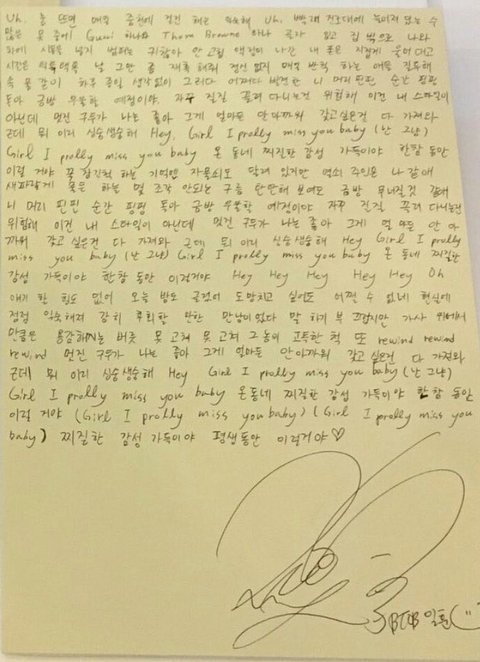 Uh, 눈 뜨면 매일 중천에 걸린 해는 익숙해 Uh,
많은 옷 중에 Gucci 하나와 Thom Browne 하나 골라 입고 집 밖으로 나와
안 고친 액정이 나간 내 폰은 지겹게 울어대고
시간은 널 그만 좀 재촉해줘 정신 없지 매번 반복 하는 이별 질투해
하루 종일 생각없이 그러다 어쩌다 발견한 니 머리핀 핀 순간 핑핑
돌아 금방 우울할 예정이야 자꾸 질질 끌려 다니는건 위험해 이건 내 스타일이
아닌데 멋진 구두가 나는 좋아 그게 얼마든 안 아까워 갖고싶은건 다 가져와
근데 뭐 이리 싱숭생숭해 Hey, Girl I prolly miss you baby (난 그냥)
Girl I prolly miss you baby 온 동네 찌질한 감성 가득이야 한참 동안
이럴 거야 꽉 잠긴 기억엔 자물쇠도 달려 있지만 열쇠 주인은 나 같애
새파랗게 물은 하는 멀 조각 안되는 구름 단단해 보여도 금방 무너질것 같애
니 머리 핀핀 순간 핑핑 돌아 금방 우울할 예정이야 자꾸 질질 끌려 다니는건
위험해 이건 내 스타일이 아닌데 멋진 구두가 나는 좋아 그게 얼마든 안 아
까워 갖고 싶은건 다 가져와 근데 뭐 이리 싱숭생숭해 Hey Girl I prolly
miss you baby (난 그냥) Girl I prolly miss you baby 온 동네 찌질한
감성 가득이야 한참 동안 이럴거야 Hey Hey Hey Hey Hey Oh
얘기 할 힘도 없어 오늘 밤도 도망치고 싶어도 어쩔 수 없네 현실에
점점 익숙해져 감히 후회할 만한 만남이었다 말 하기 부끄럽지만 가사 위에서
만큼은 용감해지는 버릇 못 고쳐 못 고쳐 그놈이 고독한 척 또 rewind rewind
rewind 멋진 구두가 나는 좋아 그게 얼마든 안 아까워 갖고싶은건 다 가져와
근데 뭐 이리 싱숭생숭해 Hey Girl I prolly miss you baby (난 그냥)
Girl I prolly miss you baby 온동네 찌질한 감성 가득이야 한참 동안
이럴 거야 (Girl I prolly miss you baby) (Girl I prolly miss you
baby) 찌질한 감성 가득이야 평생동안 이럴거야♡
BTOB 일훈